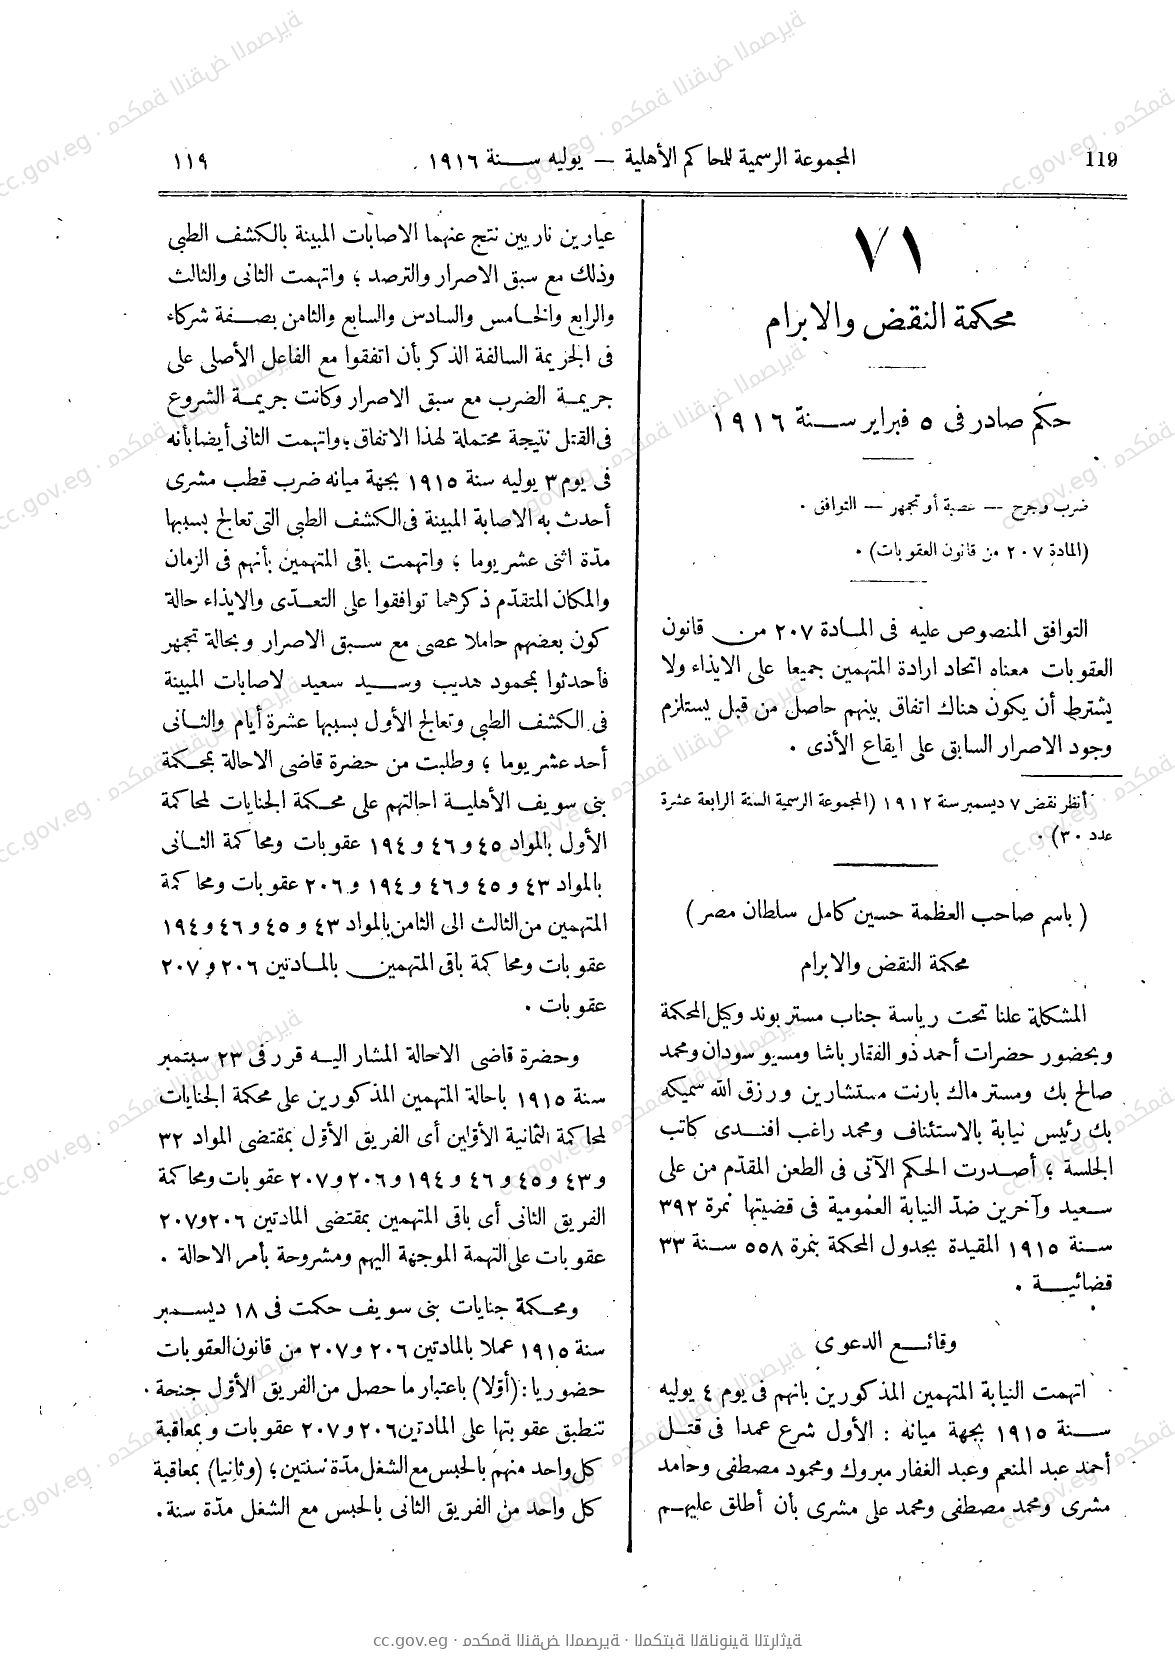 119
المجموعة الرسمية للمحاكم الأهلية — يوليه سنة ١٩١٦
١١٩
٧١
محكمة النقض والابرام
حكم صادر فى ٥ فبراير سنة ١٩١٦
ضرب وجرح — عصبة أو تجمهر — التوافق .
(المادة ٢٠٧ من قانون العقوبات) .
التوافق المنصوص عليه فى المادة ٢٠٧ من قانون
العقوبات معناه اتحاد ارادة المتهمين جميعا على الايذاء ولا
يشترط أن يكون هناك اتفاق بينهم حاصل من قبل يستلزم
وجود الاصرار السابق على ايقاع الأذى .
أنظر نقض ٧ ديسمبر سنة ١٩١٢ (المجموعة الرسمية السنة الرابعة عشرة
عدد ٣٠) .
( باسم صاحب العظمة حسين كامل سلطان مصر )
محكمة النقض والابرام
المشكلة علنا تحت رياسة جناب مستر بوند وكيل المحكمة
وبحضور حضرات أحمد ذو الفقار باشا ومسيو سودان ومحمد
صالح بك ومستر ماك بارنت مستشارين ورزق الله سميكه
بك رئيس نيابة بالاستئناف ومحمد راغب افندى كاتب
الجلسة ؛ أصدرت الحكم الآتى فى الطعن المقدّم من على
سعيد وآخرين ضدّ النيابة العمومية فى قضيتها نمرة ٣٩٢
سنة ١٩١٥ المقيدة بجدول المحكمة بنمرة ٥٥٨ سنة ٣٣
قضائية .
وقائع الدعوى
اتهمت النيابة المتهمين المذكورين بانهم فى يوم ٤ يوليه
سنة ١٩١٥ بجهة ميانه : الأول شرع عمدا فى قتل
أحمد عبد المنعم وعبد الغفار مبروك ومحمود مصطفى وحامد
مشرى ومحمد مصطفى ومحمد على مشرى بأن أطلق عليهم
عيارين ناريين نتج عنهما الاصابات المبينة بالكشف الطبى
وذلك مع سبق الاصرار والترصد ؛ واتهمت الثانى والثالث
والرابع والخامس والسادس والسابع والثامن بصفة شركاء
فى الجريمة السالفة الذكر بأن اتفقوا مع الفاعل الأصلى على
جريمة الضرب مع سبق الاصرار وكانت جريمة الشروع
فى القتل نتيجة محتملة لهذا الاتفاق ؛ واتهمت الثانى أيضا بأنه
فى يوم ٣ يوليه سنة ١٩١٥ بجهة ميانه ضرب قطب مشرى
أحدث به الاصابة المبينة فى الكشف الطبى التى تعالج بسببها
مدّة اثنى عشر يوما ؛ واتهمت باقى المتهمين بأنهم فى الزمان
والمكان المتقدّم ذكرهما توافقوا على التعدّى والايذاء حالة
كون بعضهم حاملا عصى مع سبق الاصرار وبحالة تجمهر
فأحدثوا بمحمود هديب وسيد سعيد لاصابات المبينة
فى الكشف الطبى وتعالج الأول بسببها عشرة أيام والثانى
أحد عشر يوما ؛ وطلبت من حضرة قاضى الاحالة بمحكمة
بنى سويف الأهلية احالتهم على محكمة الجنايات لمحاكمة
الأول بالمواد ٤٥ و٤٦ و ١٩٤ عقوبات ومحاكمة الثانى
بالمواد ٤٣ و ٤٥ و٤٦ و ١٩٤ و ٢٠٦ عقوبات ومحاكمة
المتهمين من الثالث الى الثامن بالمواد ٤٣ و ٤٥ و ٤٦ و ١٩٤
عقوبات ومحاكمة باقى المتهمين بالمادتين ٢٠٦ و ٢٠٧
عقوبات .
وحضرة قاضى الاحالة المشار اليه قرر فى ٢٣ سبتمبر
سنة ١٩١٥ باحالة المتهمين المذكورين على محكمة الجنايات
لمحاكمة الثمانية الأوّلين أى الفريق الأوّل بمقتضى المواد ٣٢
و ٤٣ و ٤٥ و ٤٦ و ١٩٤ و ٢٠٦ و ٢٠٧ عقوبات ومحاكمة
الفريق الثانى أى باقى المتهمين بمقتضى المادتين ٢٠٦ و٢٠٧
عقوبات على التهمة الموجهة اليهم ومشروحة بأمر الاحالة .
ومحكمة جنايات بنى سويف حكمت فى ١٨ ديسمبر
سنة ١٩١٥ عملا بالمادتين ٢٠٦ و٢٠٧ من قانون العقوبات
حضوريا : (أوّلا) باعتبار ما حصل من الفريق الأوّل جنحة .
تنطبق عقوبتها على المادتين ٢٠٦ و ٢٠٧ عقوبات وبمعاقبة
كل واحد منهم بالحبس مع الشغل مدّة سنتين ؛ (وثانيا) بمعاقبة
كل واحد من الفريق الثانى بالحبس مع الشغل مدّة سنة .
cc.gov.eg · محكمة النقض المصرية · المكتبة القانونية التراثية